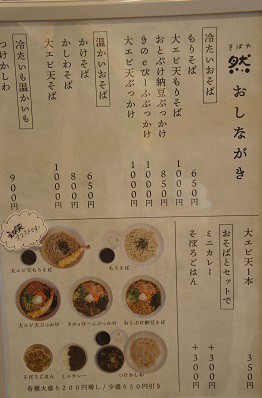 きばや
然
おしながき
冷たいおそば
もりそば 650円
大エビ天もりそば 1000円
おとぷけ納豆ぶっかけ 850円
きのeびーふぶっかけ 1000円
大エビ天ぶっかけ 1000円
温かいおそば
かけそば 650円
かしわそば 800円
大エビ天そば 1000円
冷たいも温かいも
つけかしわ 900円
大エビ天1本 350円
おそばとセットで
ミニカレー +300円
そぼろごはん +300円
大エビ天もりそば
もりそば
大エビ天ぶっかけ
きのeびーふぶっかけ
おとぷけ納豆そば
そぼろごはん
ミニカレー
つけかしわ
各種大盛り200円増し/少盛り50円引き